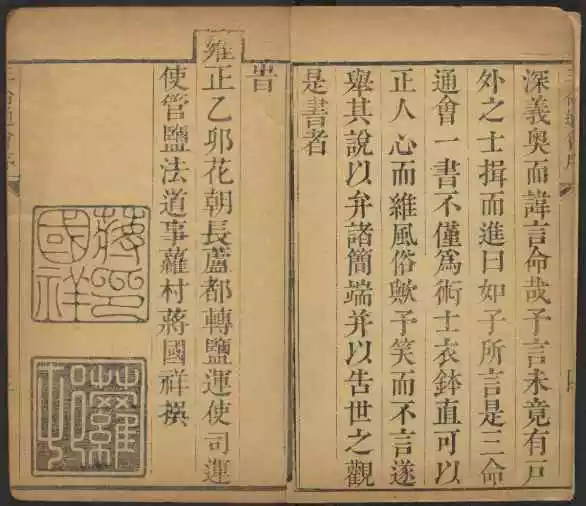 深義奧而諱言命哉予言未竟有戶
外之士揖而進曰如子所言是三命
通會一書不僅為術士衣鉢直可以
正人心而維風俗歟予笑而不言遂
舉其說以弁諸簡端并以告世之觀
是書者
旹
雍正乙卯花朝長蘆都轉鹽運使司運
使管鹽法道事蘿村蔣國祥撰
蔣國祥印
蘿村